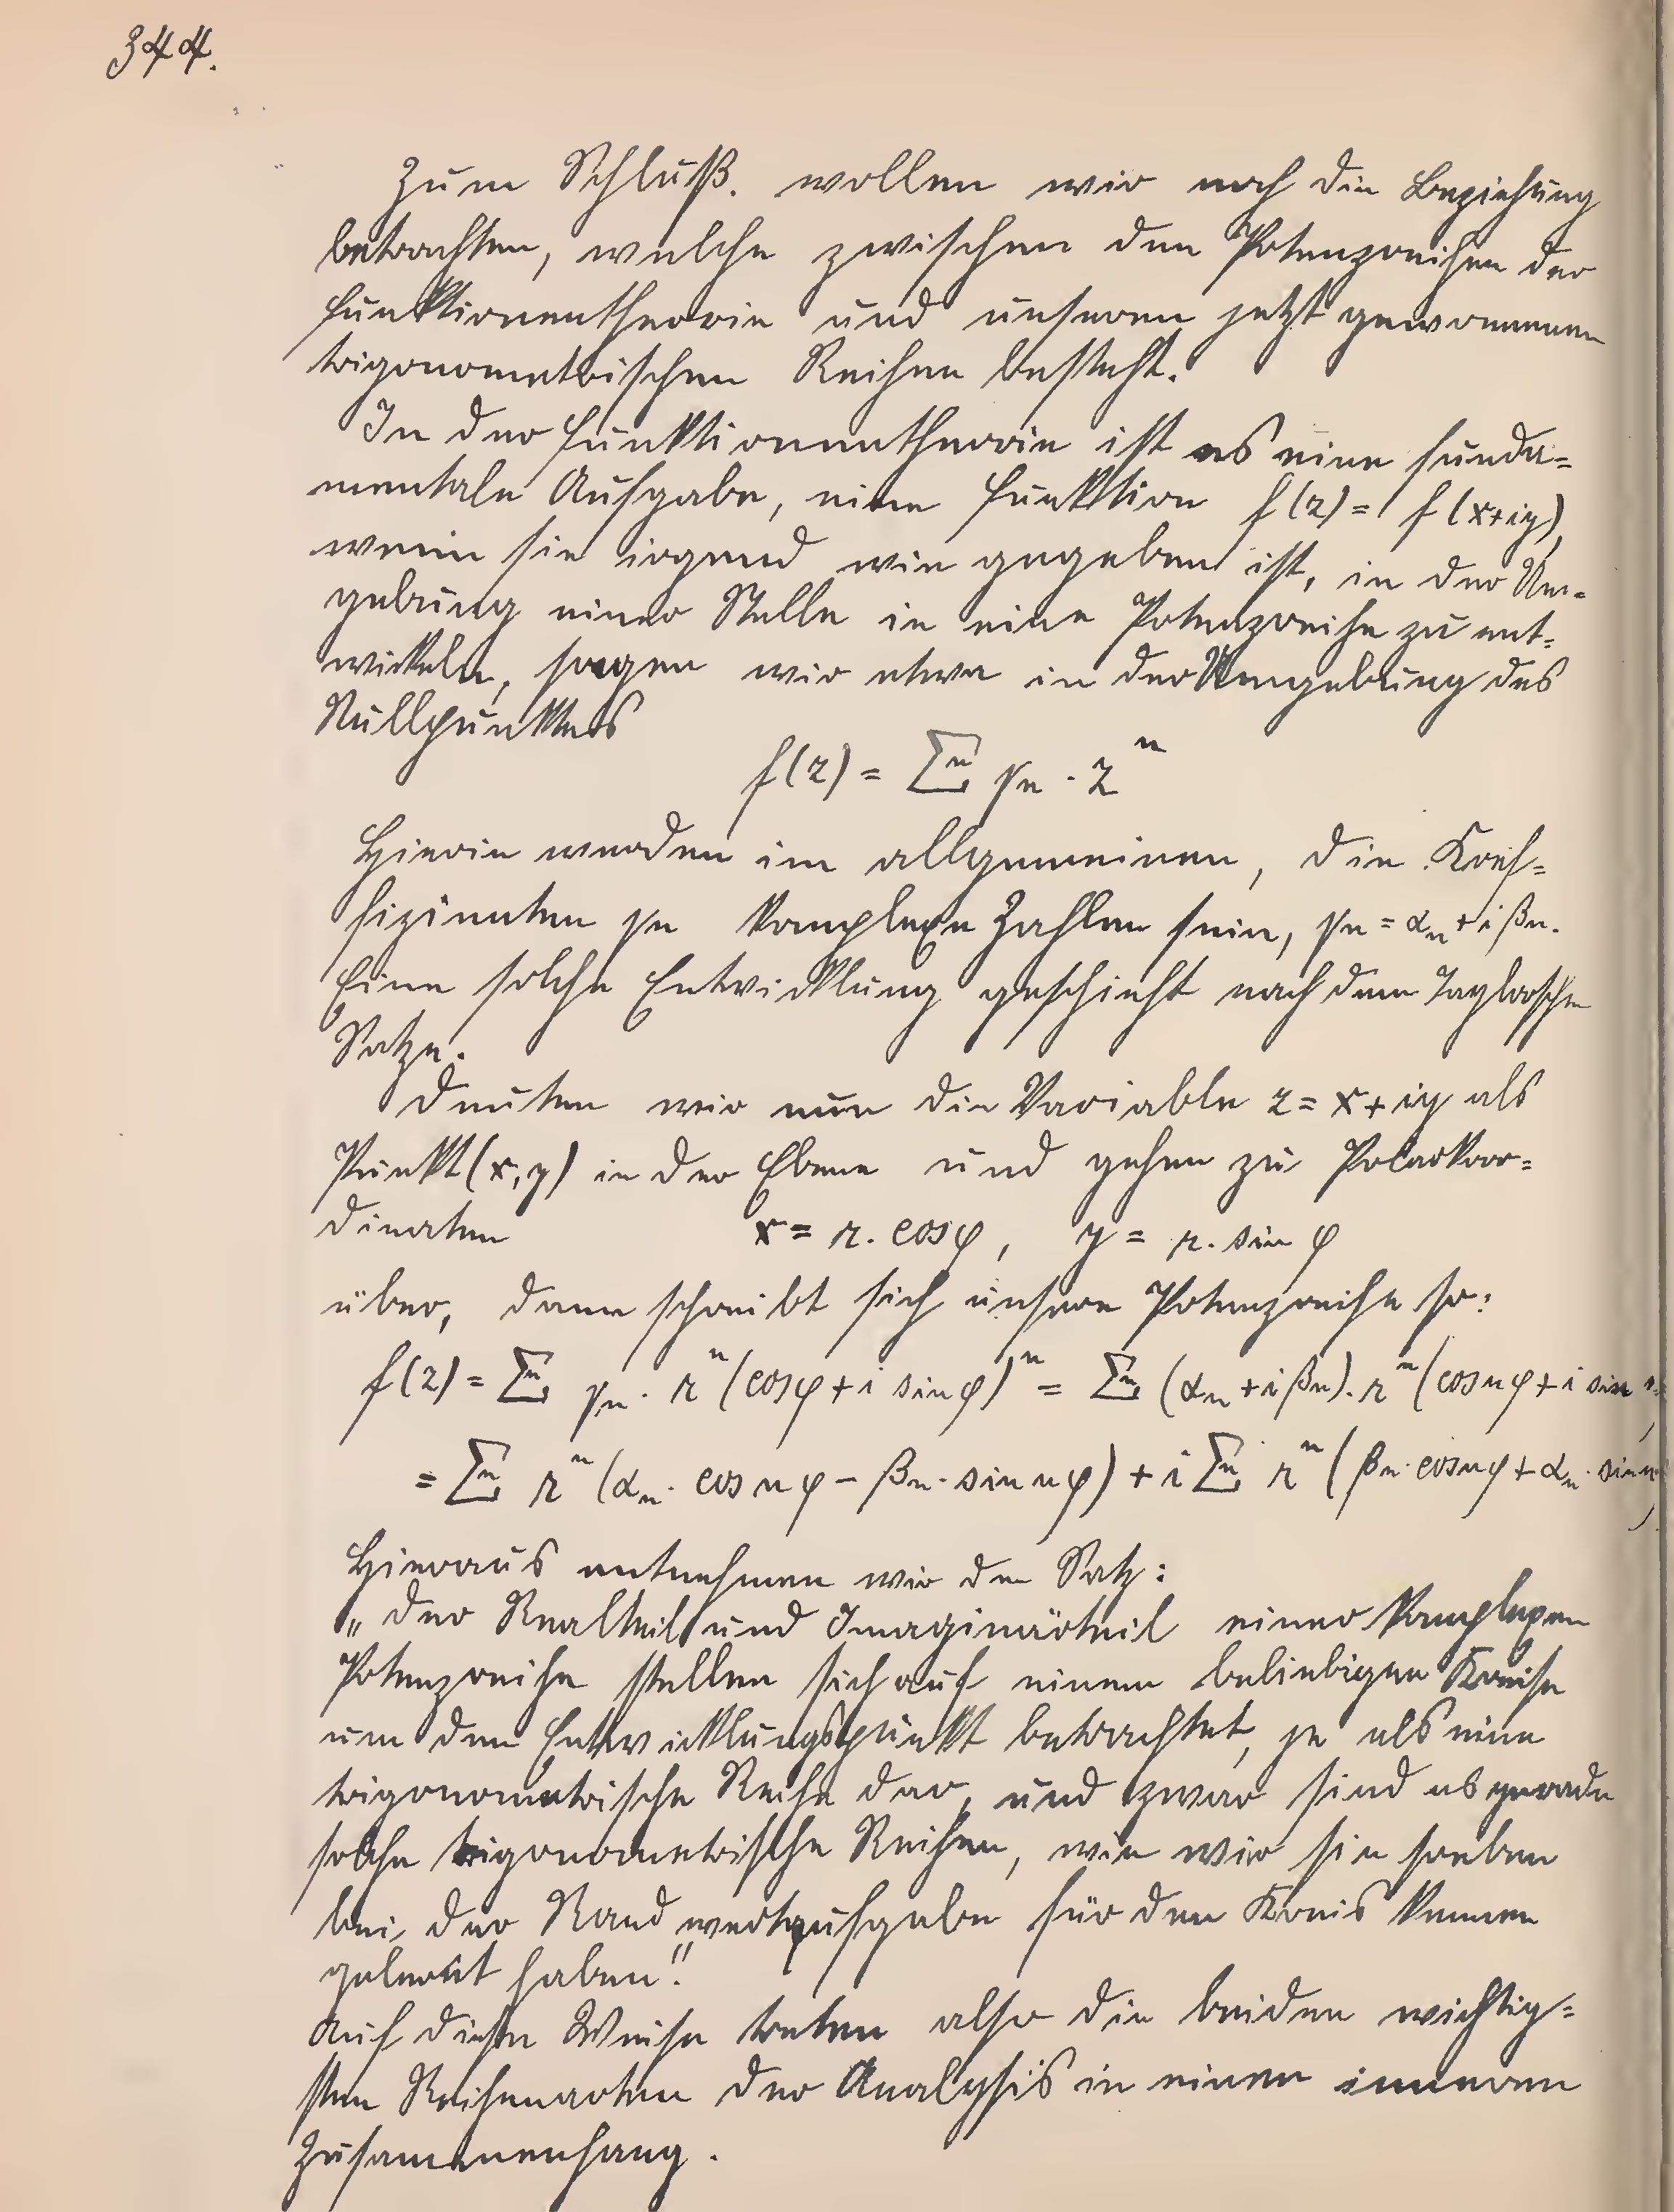 344.
Zum Schluß. wollen wir noch die Beziehung
betrachten, welche zwischen den Potenzreihen der
Funktionentheorie und unseren jetzt gewonnenen
trigonometrischen Reihen besteht.
In der Funktionentheorie ist es eine funda=
mentale Aufgabe, eine Funktion f(z) = f(x+iy),
wenn sie irgend wie gegeben ist, in der Um=
gebung einer Stelle in eine Potenzreihe zu ent=
wickeln, sagen wir etwa in der Umgebung des
Nullpunktes
f(z) = Σn γn · z^n
Hierin werden im allgemeinen, die Koef=
fizienten γn komplexe Zahlen sein, γn = αn + i βn.
Eine solche Entwicklung geschieht nach dem Taylorschen
Satze.
Deuten wir nun die Variable z = x + iy als
Punkt (x, y) in der Ebene und gehen zu Polarkoor=
dinaten x = r. cosφ, y = r. sin φ
über, dann schreibt sich unsere Potenzreihe so:
f(z) = Σn γn · r^n (cosφ + i sinφ)^n = Σn (αn + i βn). r^n (cosnφ + i sin
= Σn r^n (αn · cos nφ – βn · sin nφ) + i Σn r^n (βn · cosnφ + αn · sin n
Hieraus entnehmen wir den Satz:
„Der Realteil und Imaginärteil einer komplexen
Potenzreihe stellen sich auf einem beliebigen Kreise
um den Entwicklungspunkt betrachtet, je als eine
trigonometrische Reihe dar, und zwar sind es gerade
solche trigonometrische Reihen, wie wir sie soeben
bei der Randwertaufgabe für den Kreis kennen
gelernt haben."
Auf diese Weise treten also die beiden wichtig=
sten Reihenarten der Analysis in einen inneren
Zusammenhang.